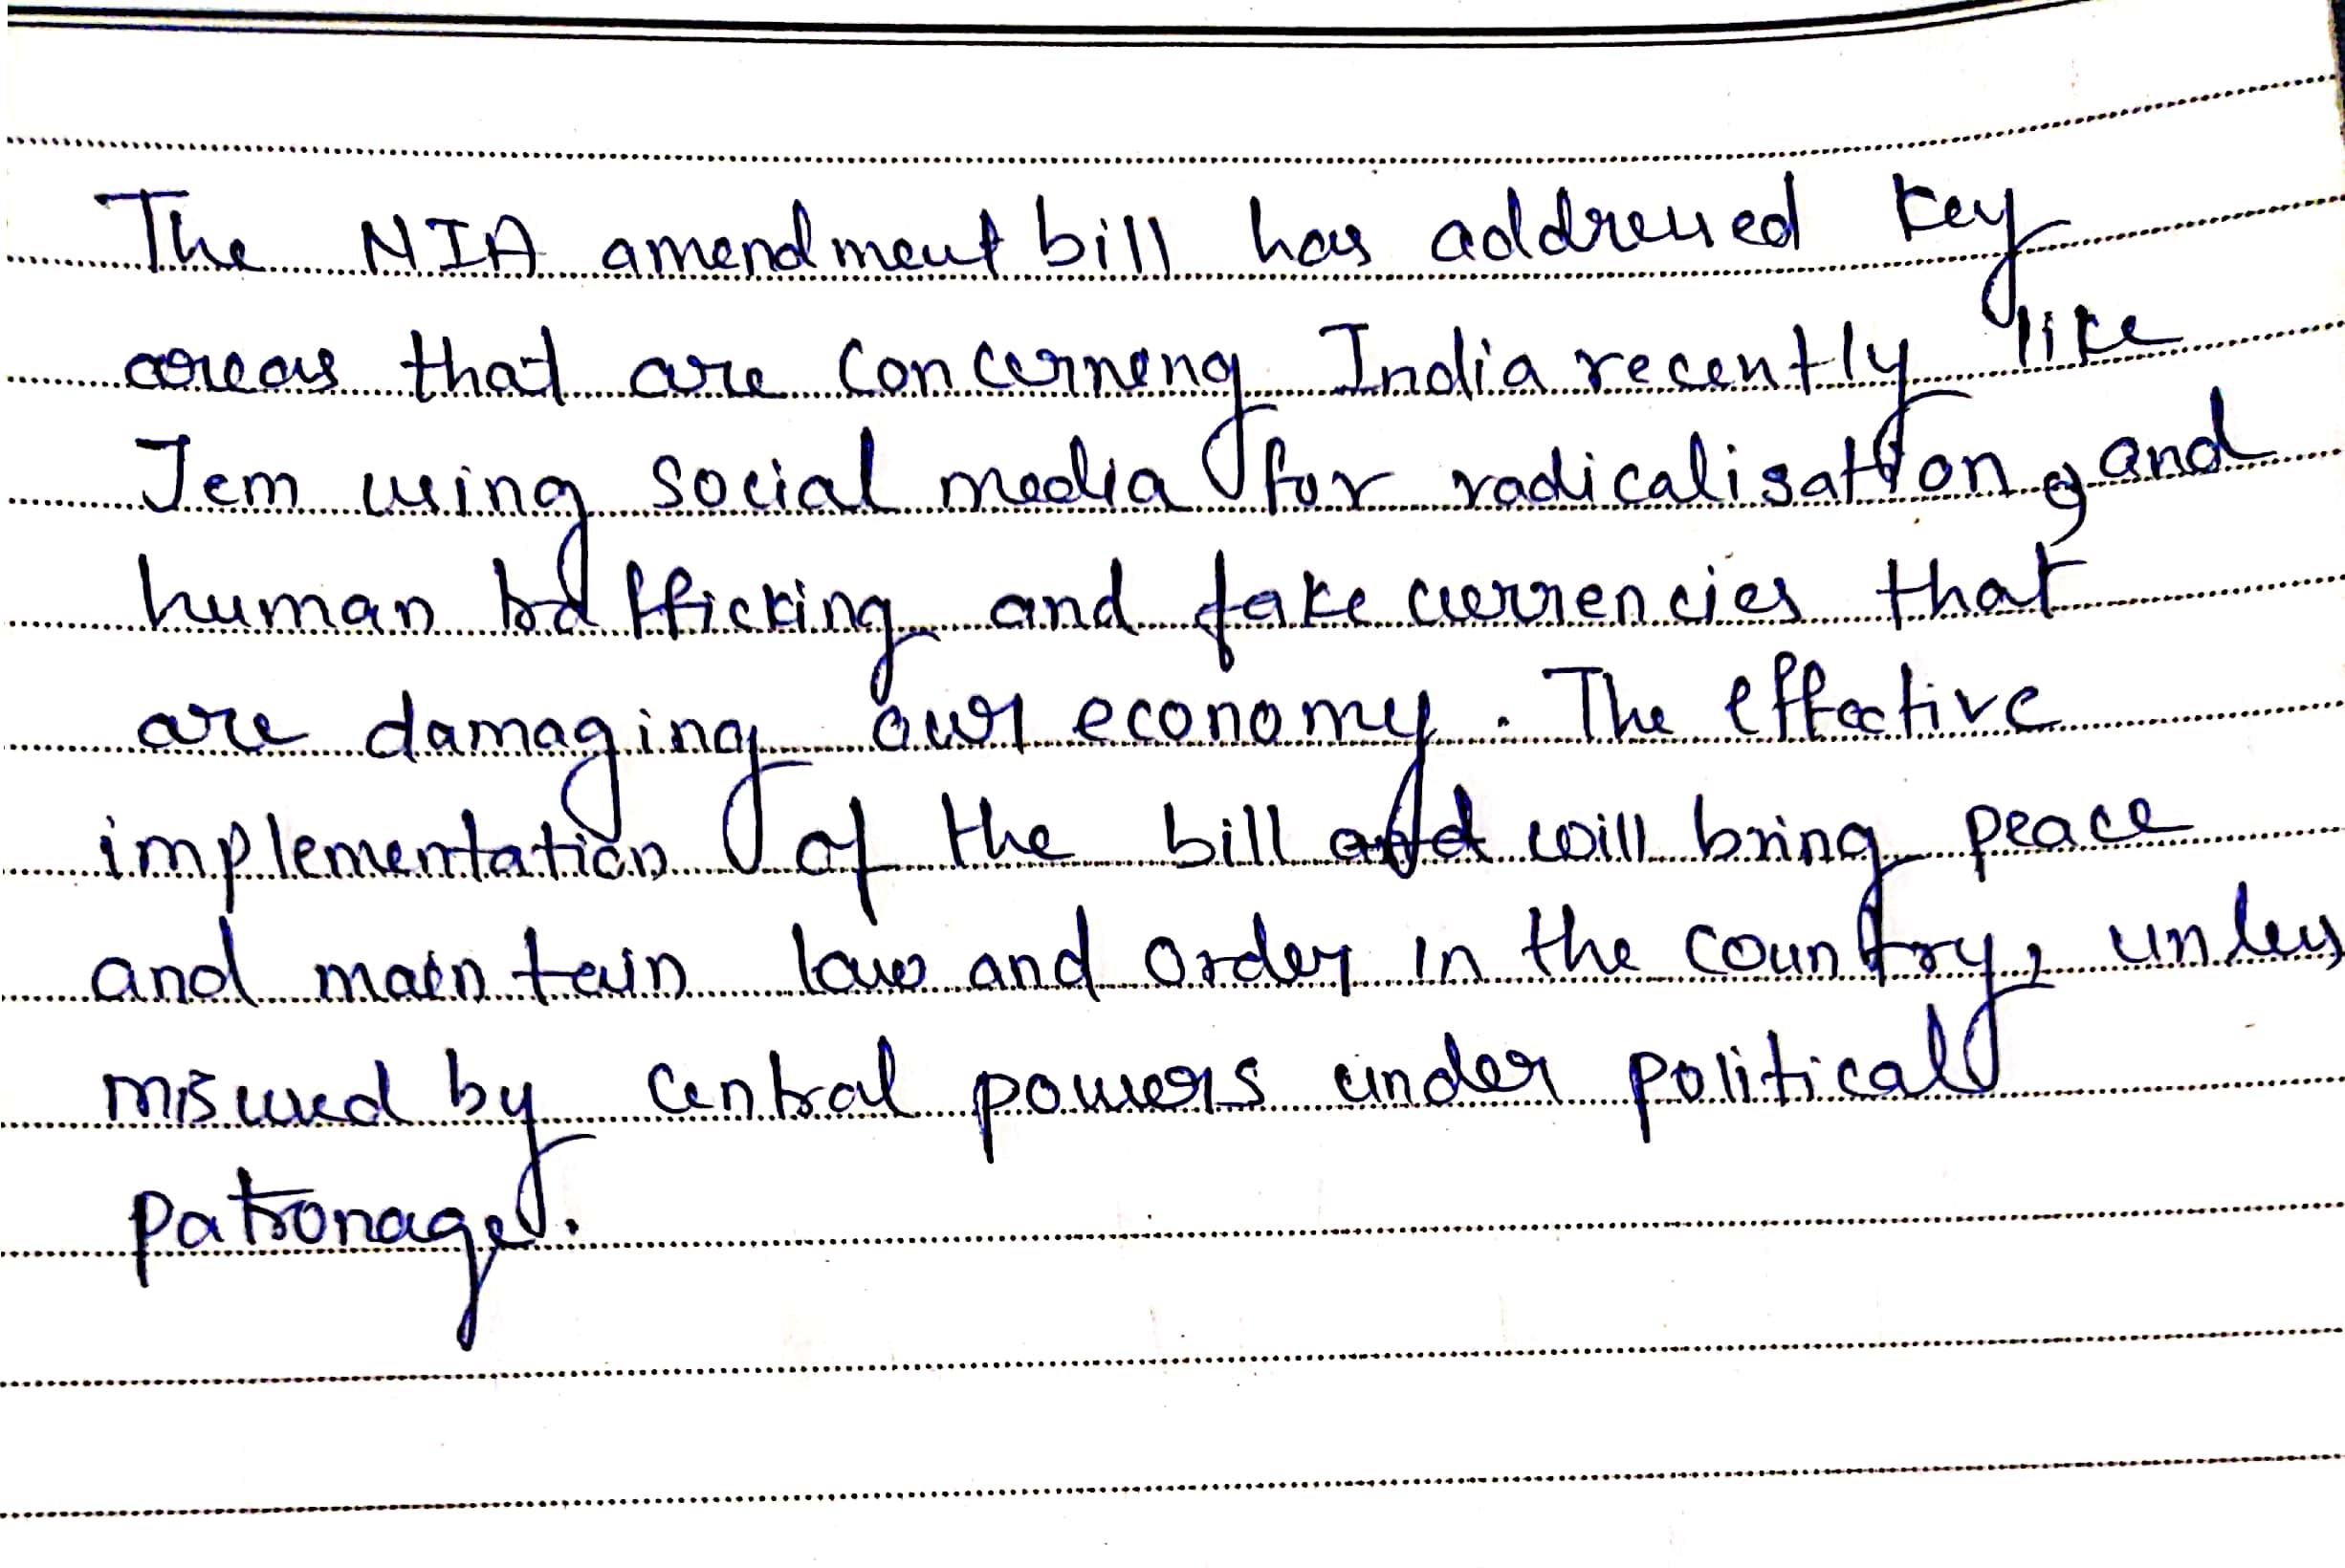 The NIA amendment bill has addressed key
areas that are concerning India recently like
Jem using social media for radicalisation, and
human trafficking and fake currencies that
are damaging our economy. The effective
implementation of the bill and will bring peace
and maintain law and order in the country, unless
misused by central powers under political
patronage.